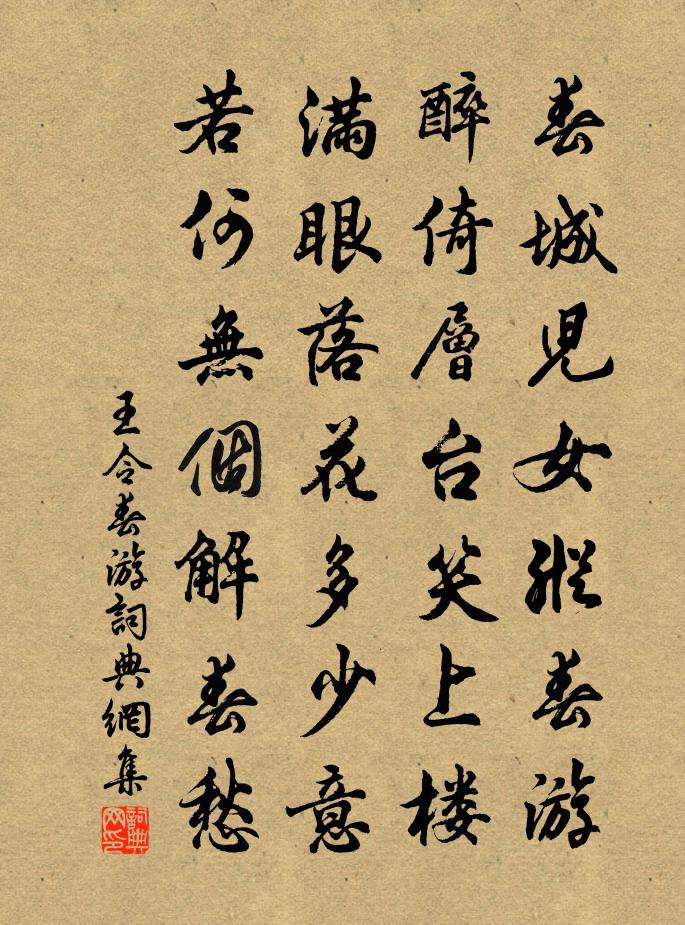 春城兒女縱春游
醉倚層台笑上楼
滿眼落花多少意
若何無個解春愁
王令春游詞典網集
詞典網印